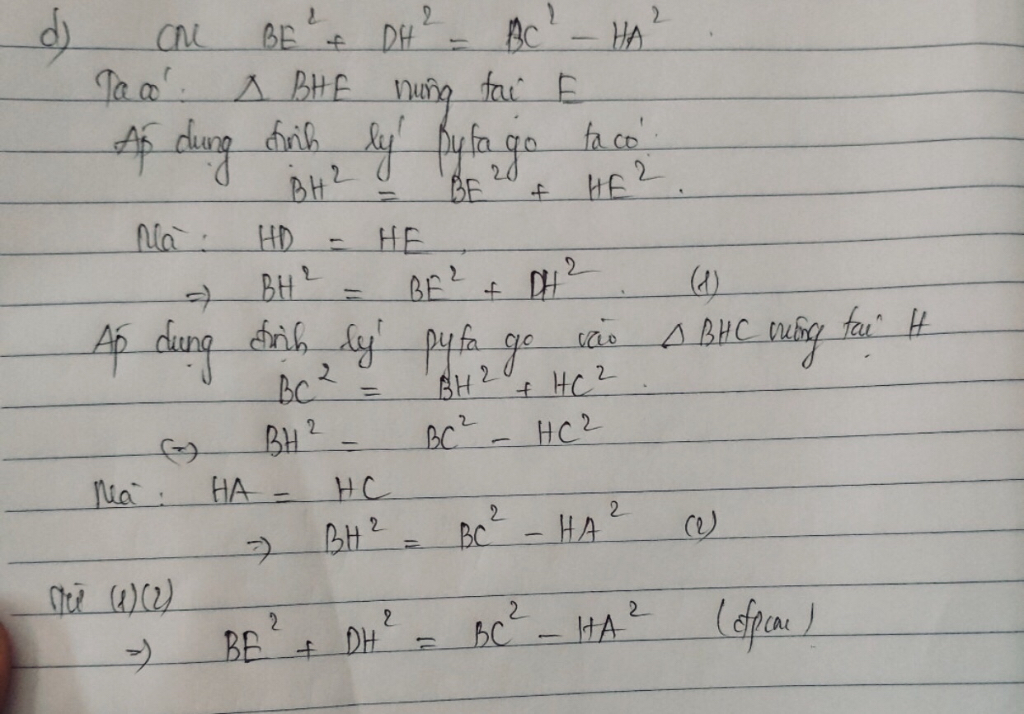 d) CM BE² + DH² = BC² - HA².
Ta có: Δ BHE vuông tại E
Áp dụng định lý pytago ta có:
BH² = BE² + HE².
Mà: HD = HE,
=> BH² = BE² + DH². (1)
Áp dụng định lý pytago vào Δ BHC vuông tại H
BC² = BH² + HC².
(=) BH² = BC² - HC²
Mà: HA = HC
=> BH² = BC² - HA² (2)
Từ (1)(2)
=> BE² + DH² = BC² - HA² (đpcm)